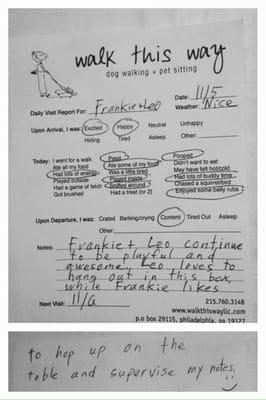 walk this way
dog walking + pet sitting
Daily Visit Report For: Frankie + Leo Date: 11/5
Weather: Nice
Upon Arrival, I was: Excited Happy Neutral Unhappy
Hiding Tired Asleep Other:
Today: I went for a walk Peed Pooped
Ate all my food Ate some of my food Didn't want to eat
Had lots of energy Was a little tired May have felt hot/cold
Played outside Played inside Had lots of buddy time
Had a game of fetch Sniffed around Chased a squirrel/bird
Got brushed Had a treat (or 2) Enjoyed some belly rubs
Upon Departure, I was: Crated Barking/crying Content Tired Out Asleep
Other:
Notes: Frankie + Leo continue
to be playful and
awesome. Leo loves to
hang out in this box,
while Frankie likes
Next Visit: 11/6 215.760.3148
www.walkthiswayllc.com
p.o box 29115, philadelphia, pa 19127
to hop up on the
table and supervise my notes.